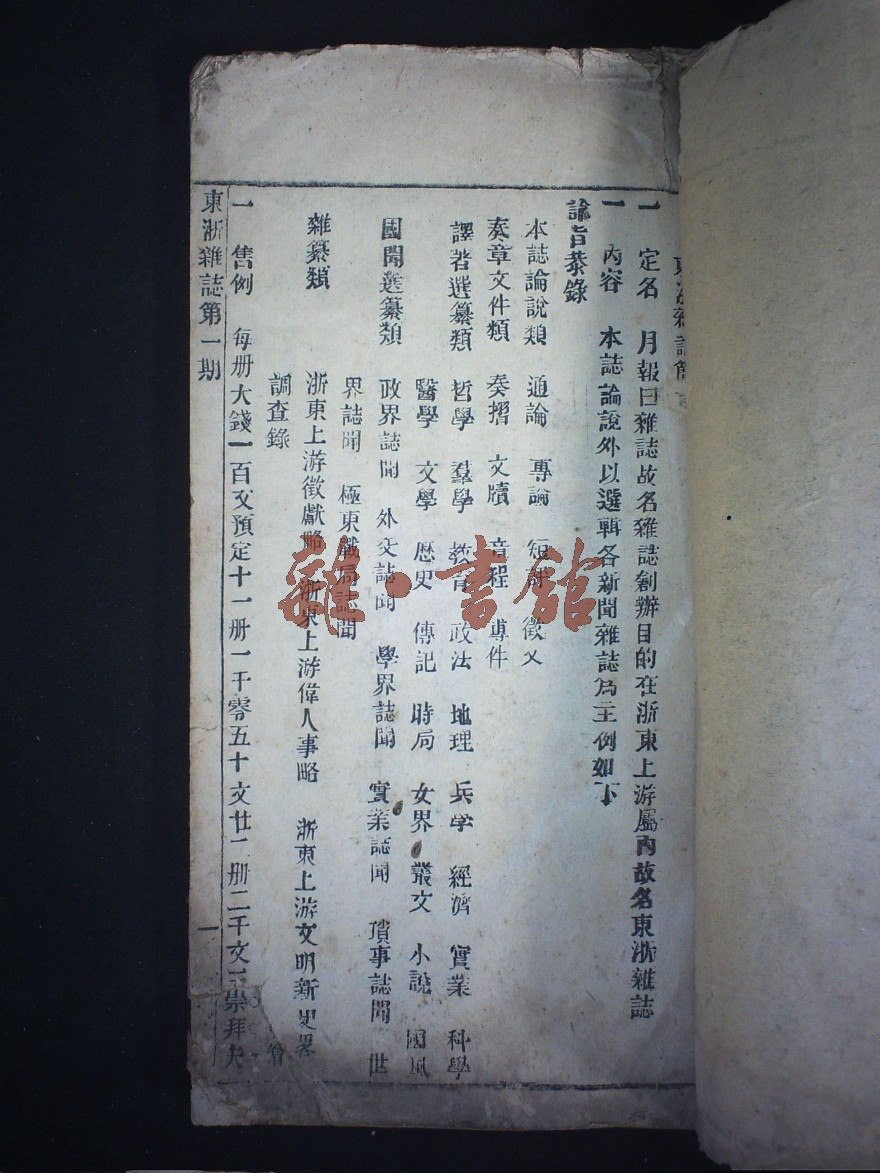 東浙雜誌簡
一 定名 月報曰雜誌故名雜誌創辦目的在浙東上游屬內故名東浙雜誌
一 內容 本誌論說外以選輯各新聞雜誌爲主例如下
諭旨恭錄
本誌論說類 通論 專論 短評 徵文
奏章文件類 奏摺 文牘 章程 專件
譯著選纂類 哲學 羣學 教育 政法 地理 兵學 經濟 實業 科學
醫學 文學 歷史 傳記 時局 女界 叢文 小說 國風
國聞選纂類 政界誌聞 外交誌聞 學界誌聞 實業誌聞 瑣事誌聞 世
界誌聞 極東戰局誌聞
雜纂類 浙東上游徵獻略 浙東上游偉人事略 浙東上游文明新史畧
調查錄
一 售例 每册大錢一百文預定十一册一千零五十文廿二册二千文 崇拜夫
東浙雜誌第一期
一
雜·書館